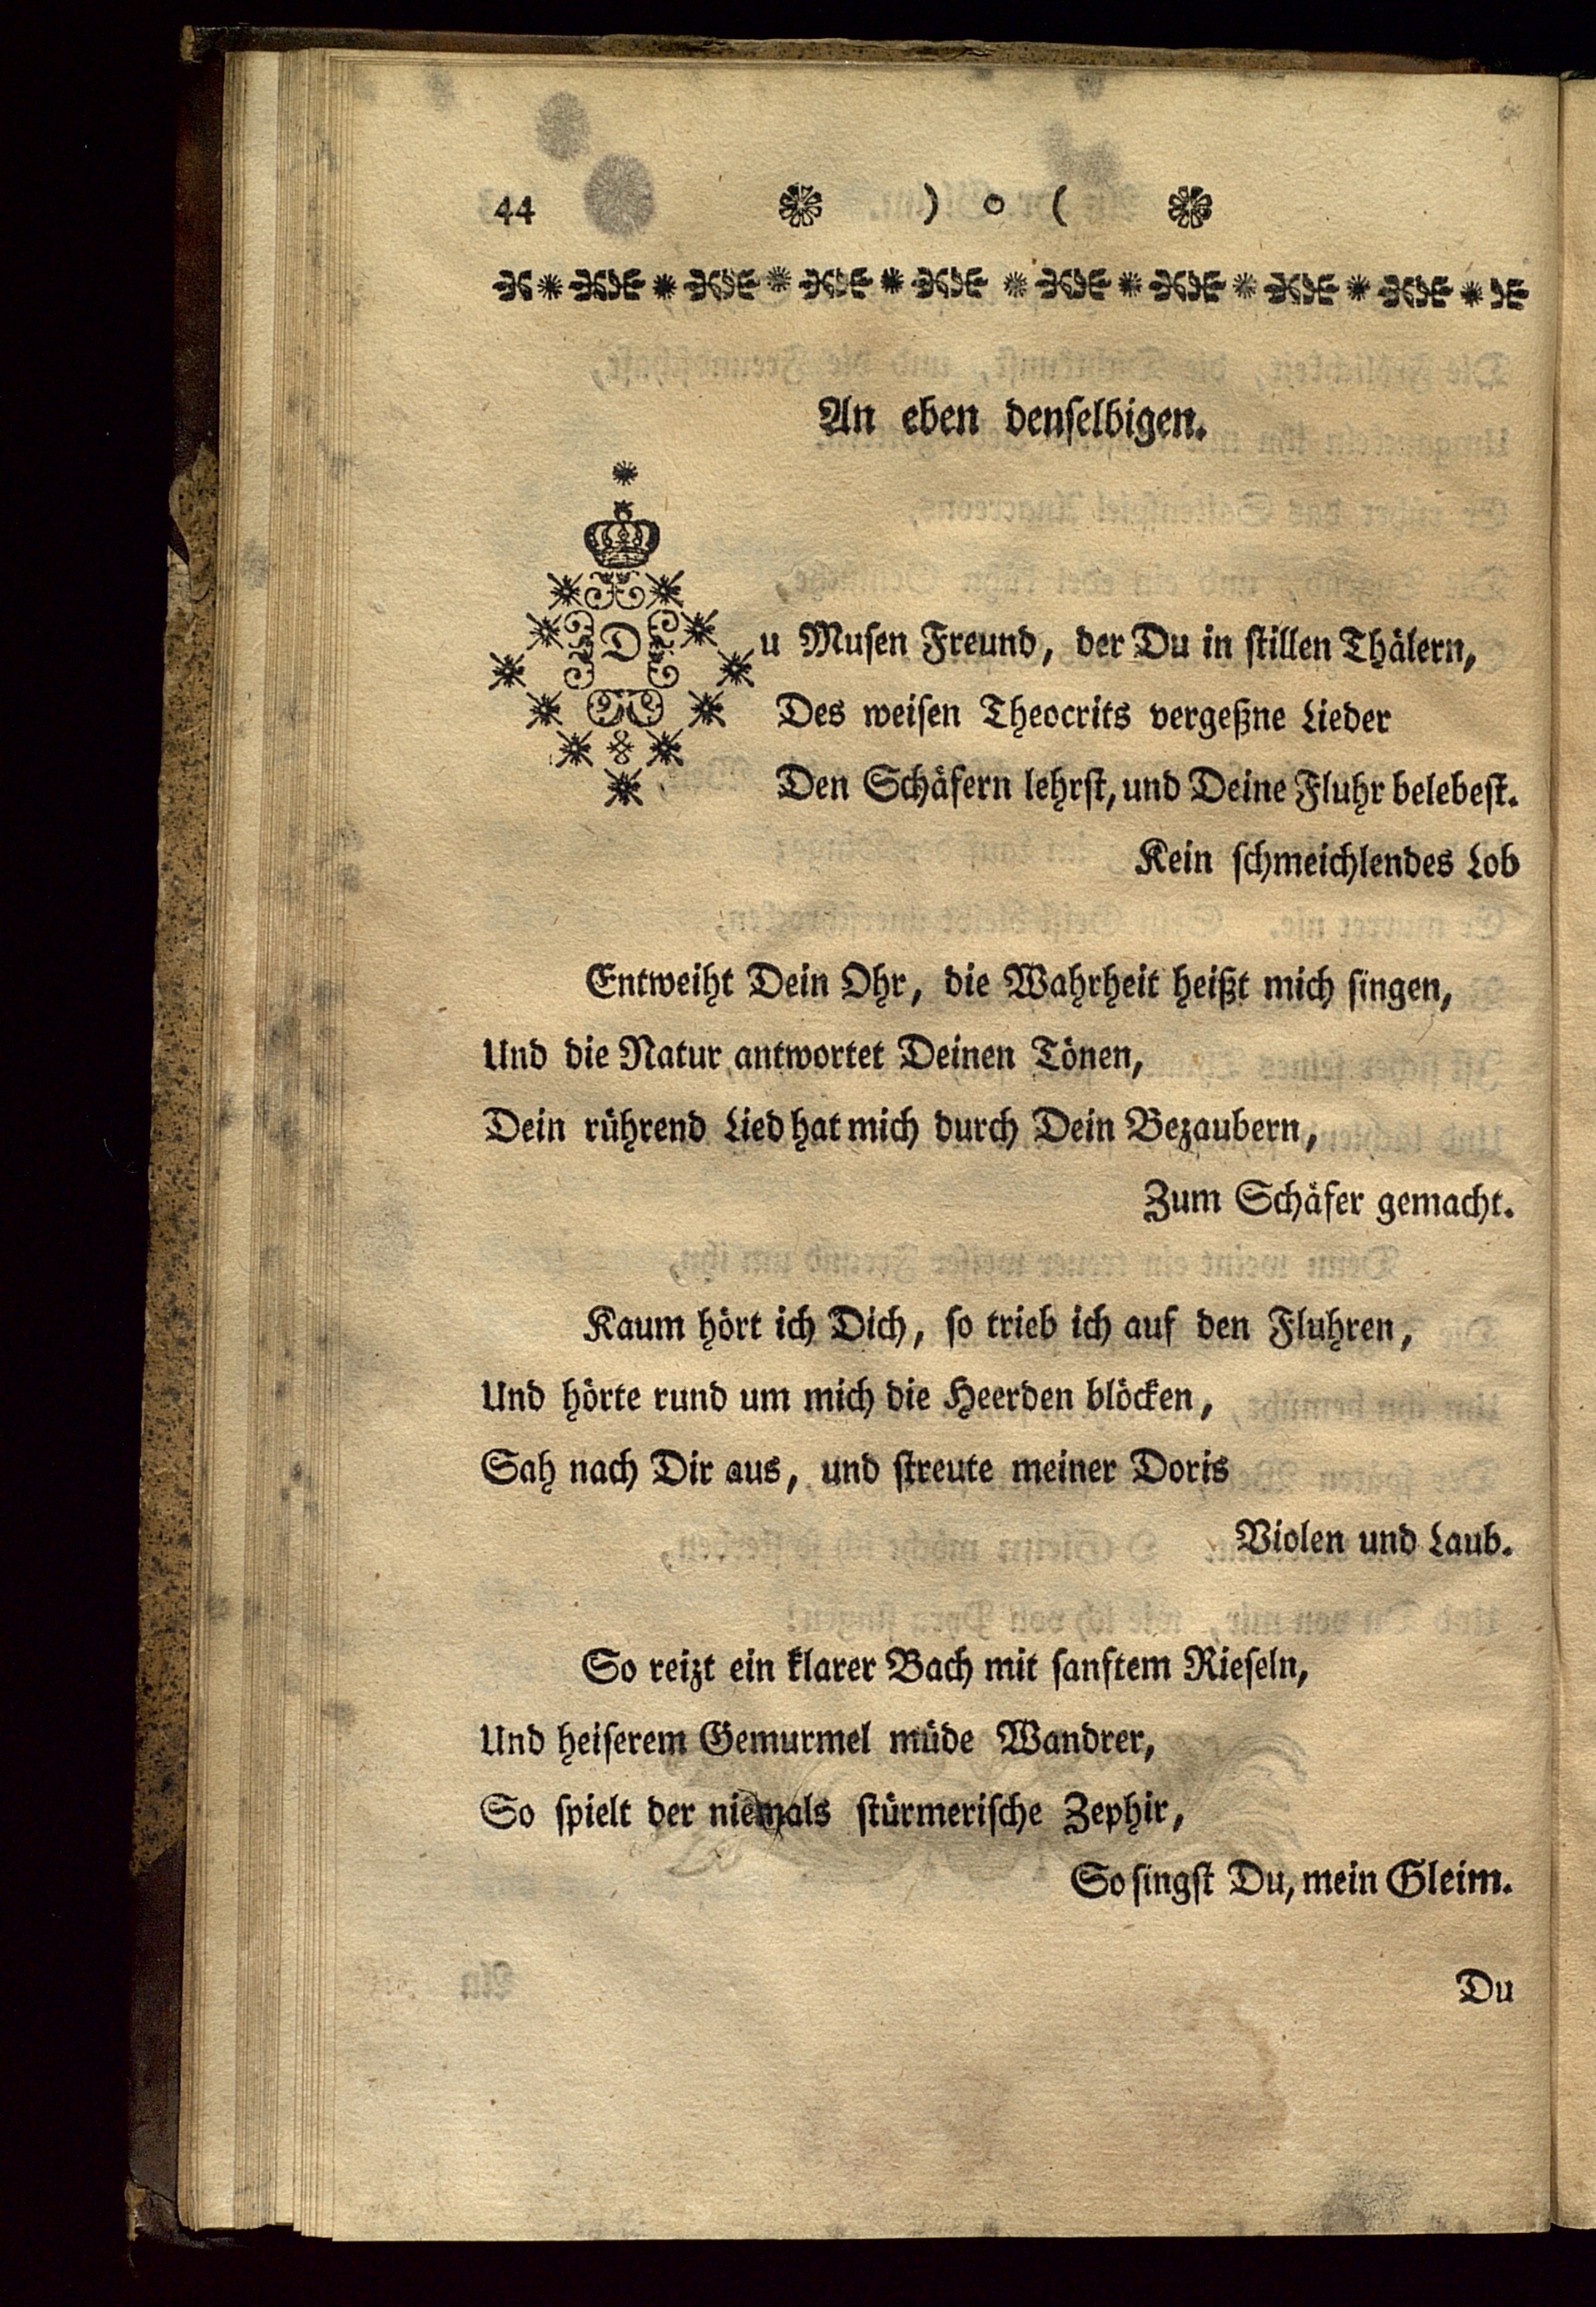 44 ) o (
An eben denſelbigen.
Du Muſen Freund, der Du in ſtillen Thälern,
Des weiſen Theocrits vergeßne Lieder
Den Schäfern lehrſt, und Deine Fluhr belebeſt.
Kein ſchmeichlendes Lob
Entweiht Dein Ohr, die Wahrheit heißt mich ſingen,
Und die Natur antwortet Deinen Tönen,
Dein rührend Lied hat mich durch Dein Bezaubern,
Zum Schäfer gemacht.
Kaum hört ich Dich, ſo trieb ich auf den Fluhren,
Und hörte rund um mich die Heerden blöcken,
Sah nach Dir aus, und ſtreute meiner Doris
Violen und Laub.
So reizt ein klarer Bach mit ſanftem Rieſeln,
Und heiſerem Gemurmel müde Wandrer,
So ſpielt der niemals ſtürmeriſche Zephir,
So ſingſt Du, mein Gleim.
Du